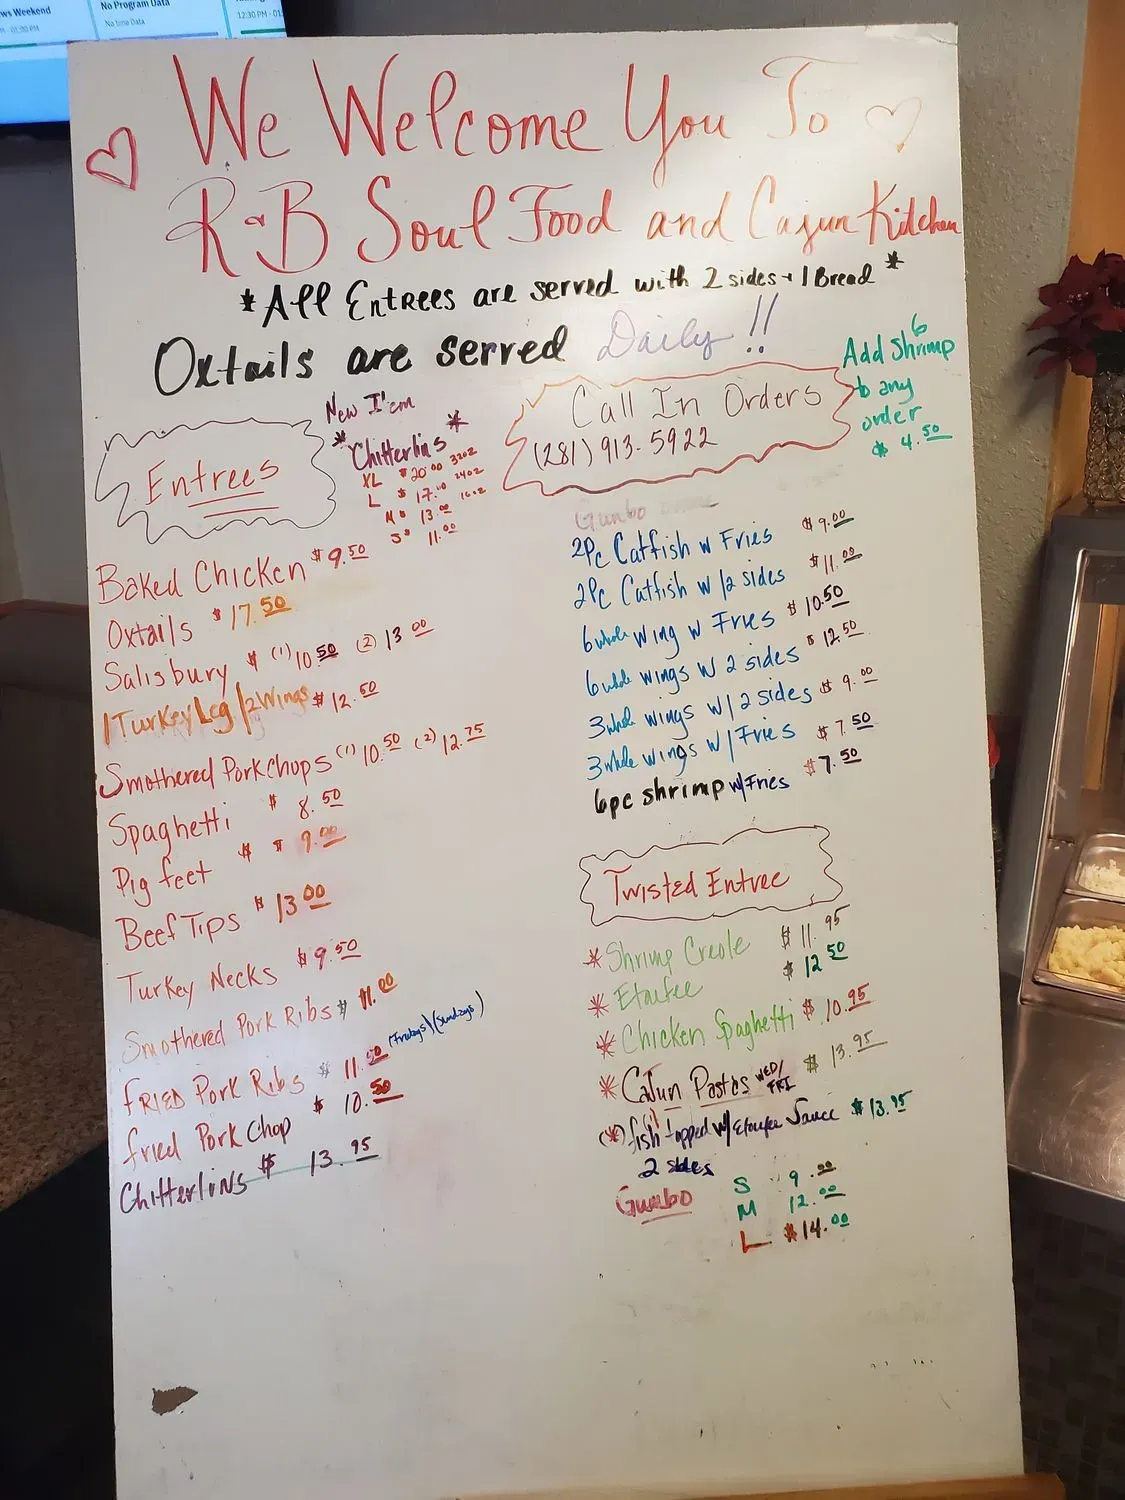 ws Weekend
No Program Data
No time Data
12:30 PM - 01
We Welcome You To
R&B Soul Food and Cajun Kitchen
*All Entrees are served with 2 sides + 1 Bread *
Oxtails are served Daily!!
Add 6 Shrimp
to any
order
$ 4.50
Call In Orders
(281) 913.5922
Entrees
New I'em
* Chitterlins *
XL $20.00 32oz
L $17.00 24oz
M $ 13.00 16oz
S $ 11.00
Baked Chicken $9.50
Oxtails $17.50
Salisbury $ (1) 10.50 (2) 13.00
1 Turkey Leg / 2 Wings $12.50
Smothered Porkchops (1) 10.50 (2) 12.75
Spaghetti $ 8.50
Pig feet $ $ 9.00
Beef Tips $ 13.00
Turkey Necks $9.50
Smothered Pork Ribs $ 11.00
fRIED Pork Ribs $ 11.50 (Fridays)(Sundays)
fried Pork Chop $ 10.50
Chitterlins $ 13.95
Gumbo
2Pc Catfish w Fries $9.00
2Pc Catfish w/2 sides $11.00
6 whole Wing w Fries $10.50
6 whole wings w 2 sides $12.50
3 whole wings w/2 sides $9.00
3 whole wings w/Fries $7.50
6pc shrimp w/Fries $7.50
Twisted Entree
*Shrimp Creole $11.95
*Etoufee $12.50
*Chicken Spaghetti $10.95
*Cajun Pastas WED/FRI $13.95
(*) fish topped w/ Etoufee Sauce $13.95
2 sides
Gumbo S 9.00
M 12.00
L $14.00